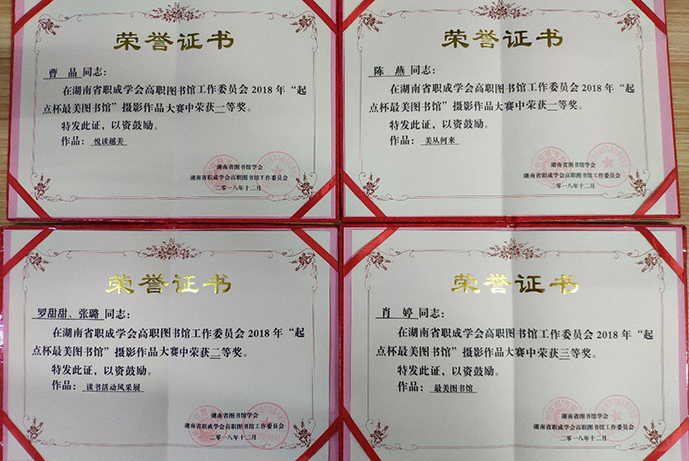 荣誉证书
曹 晶 同志：
在湖南省职成学会高职图书馆工作委员会2018年“起
点杯最美图书馆”摄影作品大赛中荣获一等奖。
特发此证，以资鼓励。
作品：悦读越美
湖南省图书馆学会
湖南省职成学会高职图书馆工作委员会
二〇一八年十二月
荣誉证书
陈 燕 同志：
在湖南省职成学会高职图书馆工作委员会2018年“起
点杯最美图书馆”摄影作品大赛中荣获一等奖。
特发此证，以资鼓励。
作品：美从何来
湖南省图书馆学会
湖南省职成学会高职图书馆工作委员会
二〇一八年十二月
荣誉证书
罗甜甜、张璐 同志：
在湖南省职成学会高职图书馆工作委员会2018年“起
点杯最美图书馆”摄影作品大赛中荣获二等奖。
特发此证，以资鼓励。
作品：读书活动风采展
湖南省图书馆学会
湖南省职成学会高职图书馆工作委员会
二〇一八年十二月
荣誉证书
肖 婷 同志：
在湖南省职成学会高职图书馆工作委员会2018年“起
点杯最美图书馆”摄影作品大赛中荣获三等奖。
特发此证，以资鼓励。
作品：最美图书馆
湖南省图书馆学会
湖南省职成学会高职图书馆工作委员会
二〇一八年十二月